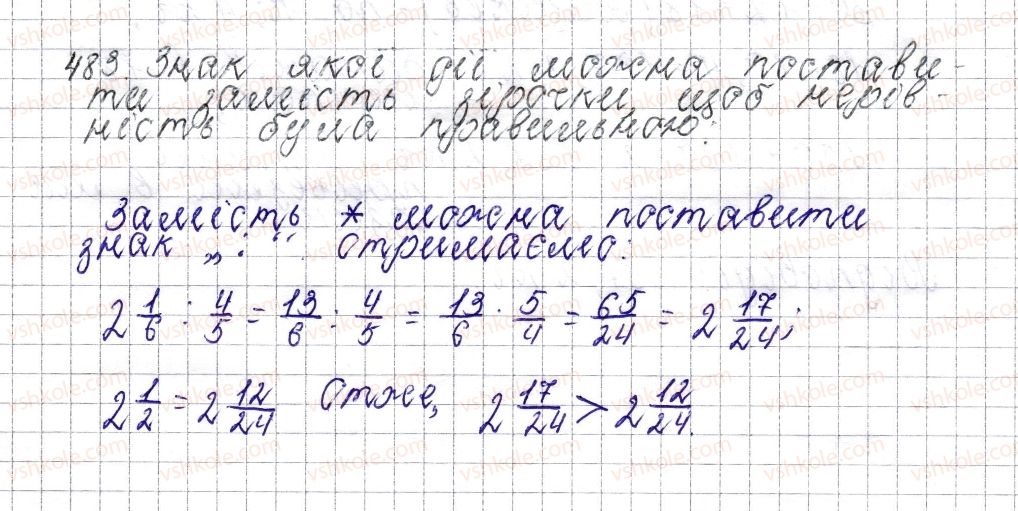 483. Знак якої дії можна постави-
ти замість зірочки, щоб нерів-
ність була правильною?
Замість * можна поставити
знак „:“. Отримаємо:
2 1/6 : 4/5 = 13/6 : 4/5 = 13/6 · 5/4 = 65/24 = 2 17/24;
2 1/2 = 2 12/24 Отже, 2 17/24 > 2 12/24.